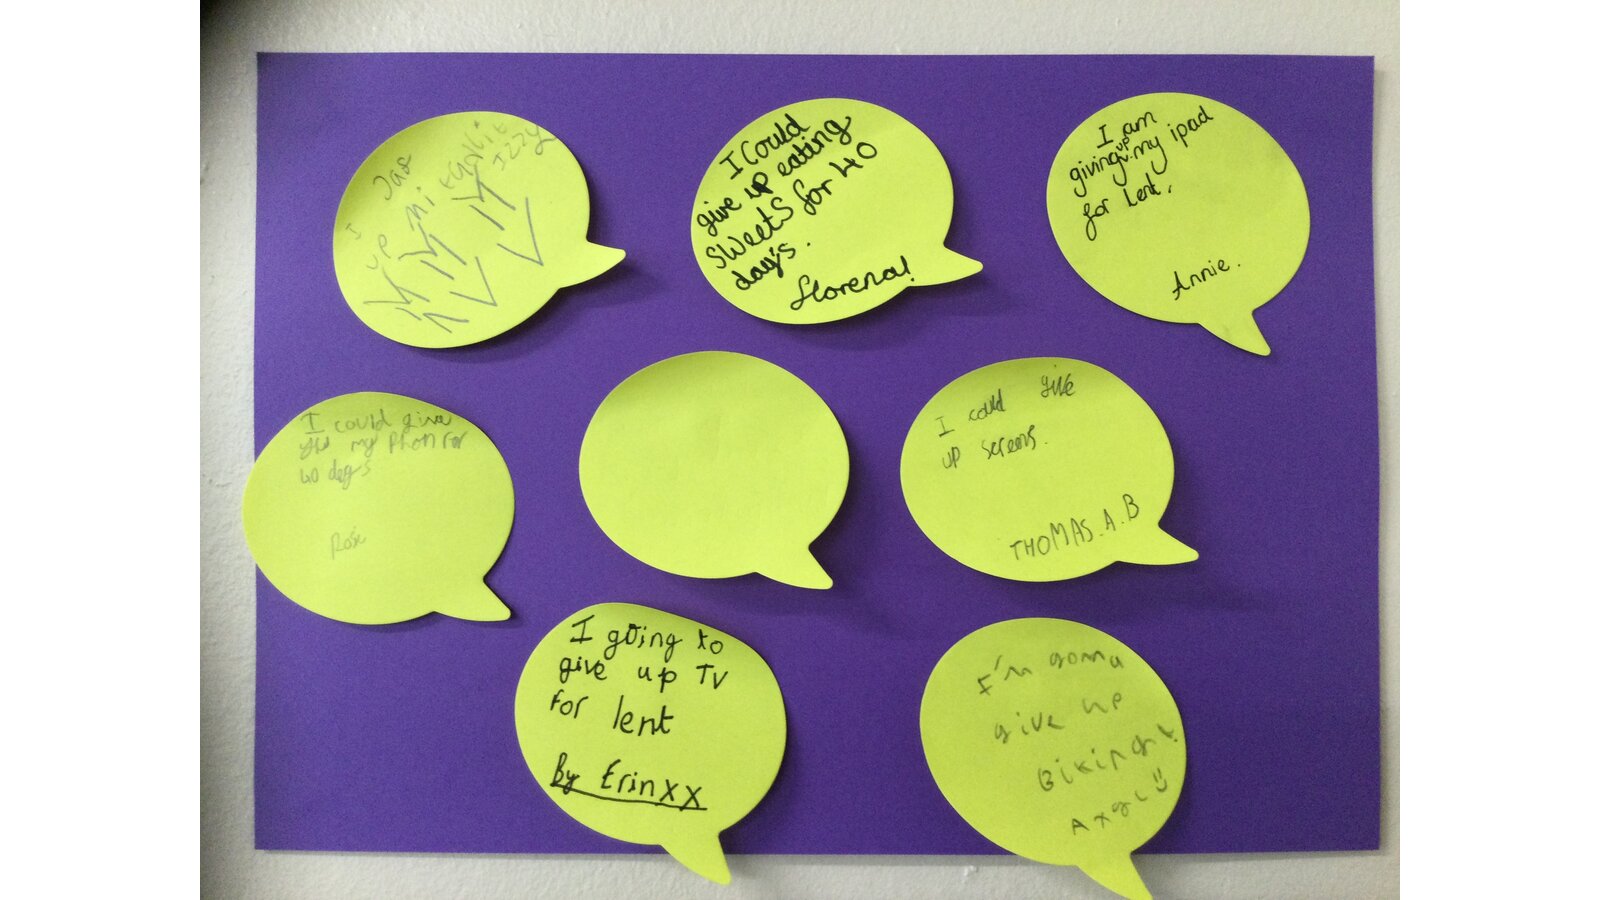 I
up
mi
Izzy
I Could
give up eating
sweets for 40
day's.
florence!
I am
giving up my ipad
for Lent.
Annie.
I could give
my Phon for
40 days
Rose
I could give
up screens.
THOMAS.A.B
I going to
give up TV
for lent
By Erinxx
I'm gonna
give up
Biking!